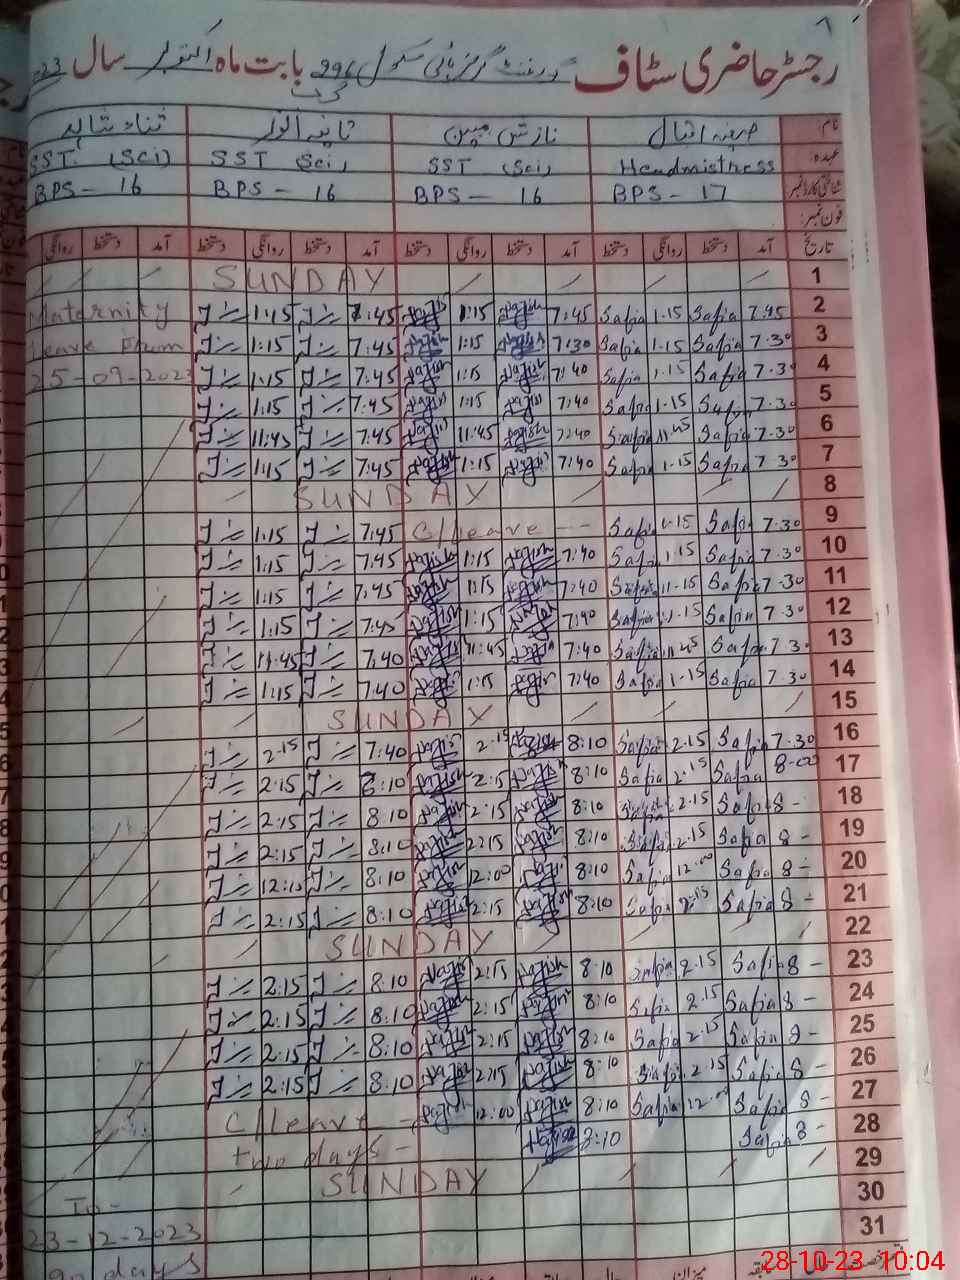 رجسٹر حاضری سٹاف گورنمنٹ گرلز ہائی سکول 296 گ ب بابت ماہ اکتوبر سال 23
نام: صفیہ اقبال نازش مبین ثناء شاہد
عہدہ: Headmistress SST (Sci) SST (Sci) SST. (Sci)
شناختی کارڈ نمبر BPS - 17 BPS - 16 BPS - 16 BPS - 16
فون نمبر:
تاریخ آمد دستخط روانگی دستخط آمد دستخط روانگی دستخط آمد دستخط روانگی دستخط آمد دستخط روانگی
1 SUNDAY
2 7:45 Safia 1.15 Safia 7:45 Nazish 1:15 Nazish 7:45 1:15 Maternity
3 7.30 Safia 1.15 Safia 7:30 Nazish 1:15 Nazish 7:45 1:15 Leave From
4 7.30 Safia 1.15 Safia 7:40 Nazish 1:15 Nazish 7:45 1:15 25-09-2023
5 7.30 Safia 1.15 Safia 7:40 Nazish 1:15 Nazish 7:45 1:15
6 7.30 Safia 11.45 Safia 7:40 Nazish 11:45 Nazish 7:45 11:45
7 7.30 Safia 1.15 Safia 7:40 Nazish 1:15 Nazish 7:45 1:15
8 SUNDAY
9 7.30 Safia 1.15 Safia C/leave -- 7:45 1:15
10 7.30 Safia 1.15 Safia 7:40 Nazish 1:15 Nazish 7:45 1:15
11 7.30 Safia 1.15 Safia 7:40 Nazish 1:15 Nazish 7:45 1:15
12 7.30 Safia 1.15 Safia 7:40 Nazish 1:15 Nazish 7:45 1:15
13 7.30 Safia 11.45 Safia 7:40 Nazish 11:45 Nazish 7:40 11:45
14 7.30 Safia 1.15 Safia 7:40 Nazish 1:15 Nazish 7:40 1:15
15 SUNDAY
16 7.30 Safia 2.15 Safia 8:10 Nazish 2:15 Nazish 7:40 2:15
17 8-00 Safia 2.15 Safia 8:10 Nazish 2:15 Nazish 8:10 2:15
18 8- Safia 2.15 Safia 8:10 Nazish 2:15 Nazish 8:10 2:15
19 8- Safia 2.15 Safia 8:10 Nazish 2:15 Nazish 8:10 2:15
20 8- Safia 12.00 Safia 8:10 Nazish 12:00 Nazish 8:10 12:10
21 8- Safia 2.15 Safia 8:10 Nazish 2:15 Nazish 8:10 2:15
22 SUNDAY
23 8- Safia 2.15 Safia 8:10 Nazish 2:15 Nazish 8:10 2:15
24 8- Safia 2.15 Safia 8:10 Nazish 2:15 Nazish 8:10 2:15
25 8- Safia 2.15 Safia 8:10 Nazish 2:15 Nazish 8:10 2:15
26 8- Safia 2.15 Safia 8:10 Nazish 2:15 Nazish 8:10 2:15
27 8- Safia 12.00 Safia 8:10 Nazish 12:00 Nazish C/leave -
28 8- Safia 8:10 Nazish two days -
29 SUNDAY
30 To -
31 23-12-2023
90 days
28-10-23 10:04